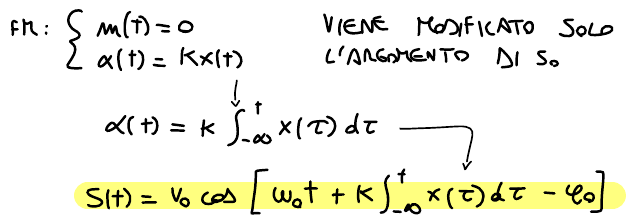 FM: { m(t) = 0 VIENE MODIFICATO SOLO
α(t) = Kx(t) L'ARGOMENTO DI S₀
α(t) = K ∫_{-∞}^{t} x(τ) dτ
S(t) = V₀ cos [ω₀t + K ∫_{-∞}^{t} x(τ) dτ - φ₀]